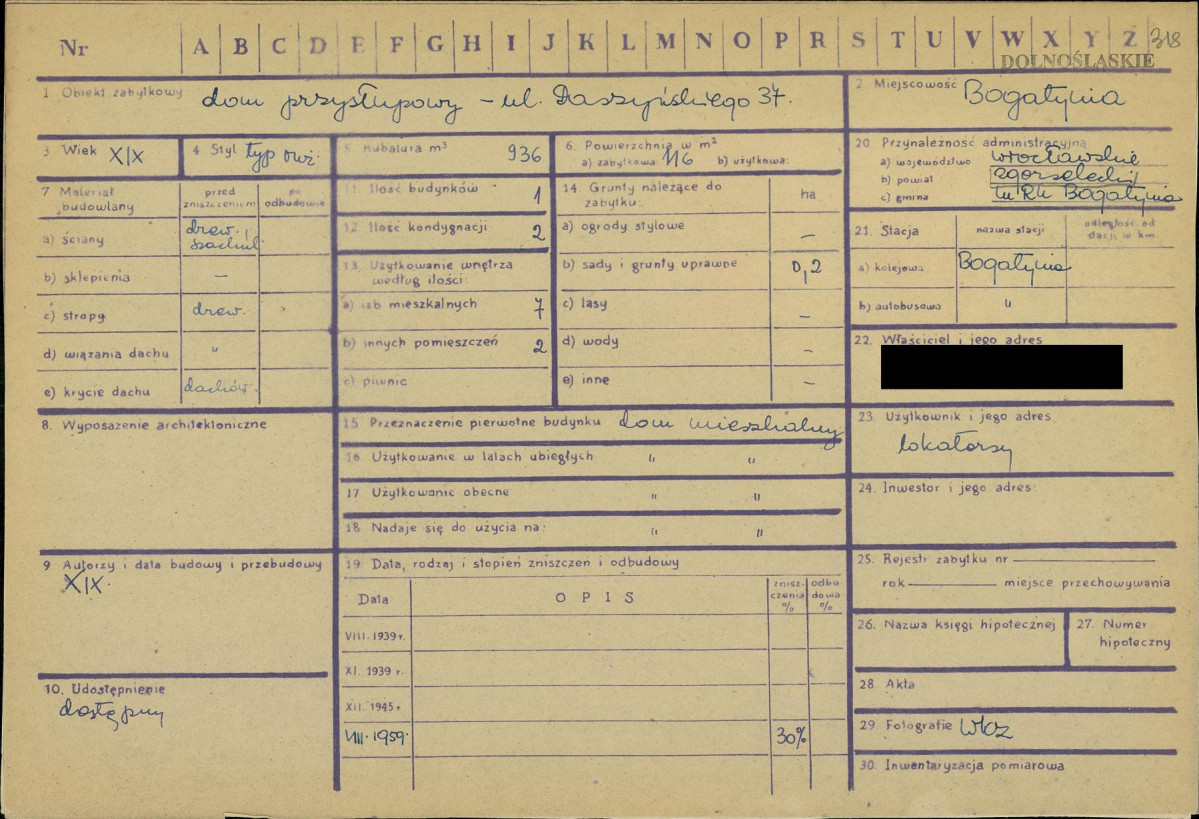 Nr A B C D E F G H I J K L M N O P R S T U V W X Y Z 318
DOLNOŚLĄSKIE
1. Obiekt zabytkowy dom przysłupowy – ul. Daszyńskiego 37.
2. Miejscowość Bogatynia
3. Wiek XIX
4. Styl typ
5. Kubatura m³ 936
6. Powierzchnia w m²
a) zabytkowa 116 b) użytkowa:
7 Materiał budowlany
przed zniszczeniem
po odbudowie
a) ściany drew. szachul.
b) sklepienia —
c) stropy drew.
d) wiązania dachu "
e) krycie dachu dachów.
8. Wyposażenie architektoniczne
9 Autorzy i data budowy i przebudowy
XIX.
10. Udostępnienie
dostępny
11. Ilość budynków 1
12. Ilość kondygnacji 2
13. Użytkowanie wnętrza
według ilości:
a) izb mieszkalnych 7
b) innych pomieszczeń 2
c) piwnic
14. Grunty należące do
zabytku:
ha
a) ogrody stylowe —
b) sady i grunty uprawne 0,2
c) lasy —
d) wody —
e) inne —
15 Przeznaczenie pierwotne budynku dom mieszkalny
16 Użytkowanie w latach ubiegłych " "
17 Użytkowanie obecne " "
18 Nadaje się do użycia na: " "
19. Data, rodzaj i stopień zniszczeń i odbudowy
Data
OPIS
znisz-
czenia
%
odbu
dowa
%
VIII. 1939 r.
XI. 1939 r.
XII. 1945 r
VIII. 1959. 30%
20 Przynależność administracyjna
a) województwo wrocławskie
b) powiat zgorzelecki
c) gmina Bogatynia
21. Stacja
nazwa stacji
odległość od
stacji w km
a) kolejowa Bogatynia
b) autobusowa "
22. Właściciel i jego adres
23. Użytkownik i jego adres
lokatorzy
24. Inwestor i jego adres:
25. Rejestr zabytku nr
rok miejsce przechowywania
26. Nazwa księgi hipotecznej
27. Numer
hipoteczny
28 Akta
29. Fotografie
30. Inwentaryzacja pomiarowa